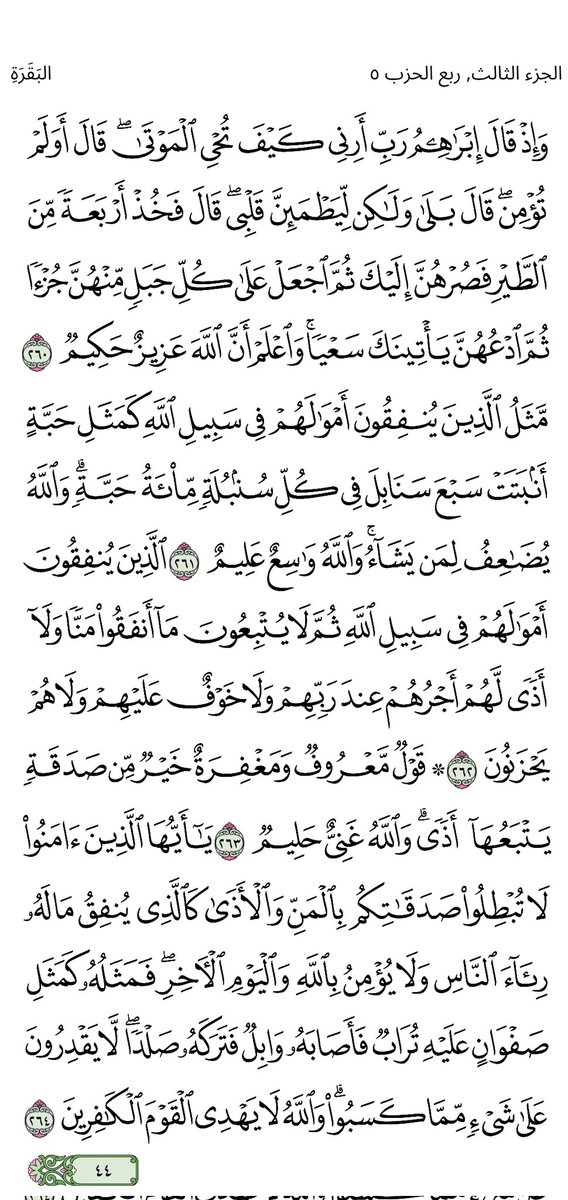 الجزء الثالث, ربع الحزب ٥ البَقَرَةِ
وَإِذۡ قَالَ إِبۡرَٰهِـۧمُ رَبِّ أَرِنِي كَيۡفَ تُحۡيِ ٱلۡمَوۡتَىٰۖ قَالَ أَوَلَمۡ
تُؤۡمِنۖ قَالَ بَلَىٰ وَلَٰكِن لِّيَطۡمَئِنَّ قَلۡبِيۖ قَالَ فَخُذۡ أَرۡبَعَةٗ مِّنَ
ٱلطَّيۡرِ فَصُرۡهُنَّ إِلَيۡكَ ثُمَّ ٱجۡعَلۡ عَلَىٰ كُلِّ جَبَلٖ مِّنۡهُنَّ جُزۡءٗا
ثُمَّ ٱدۡعُهُنَّ يَأۡتِينَكَ سَعۡيٗاۚ وَٱعۡلَمۡ أَنَّ ٱللَّهَ عَزِيزٌ حَكِيمٞ ٢٦٠
مَّثَلُ ٱلَّذِينَ يُنفِقُونَ أَمۡوَٰلَهُمۡ فِي سَبِيلِ ٱللَّهِ كَمَثَلِ حَبَّةٍ
أَنۢبَتَتۡ سَبۡعَ سَنَابِلَ فِي كُلِّ سُنۢبُلَةٖ مِّاْئَةُ حَبَّةٖۗ وَٱللَّهُ
يُضَٰعِفُ لِمَن يَشَآءُۚ وَٱللَّهُ وَٰسِعٌ عَلِيمٌ ٢٦١ ٱلَّذِينَ يُنفِقُونَ
أَمۡوَٰلَهُمۡ فِي سَبِيلِ ٱللَّهِ ثُمَّ لَا يُتۡبِعُونَ مَآ أَنفَقُواْ مَنّٗا وَلَآ
أَذٗى لَّهُمۡ أَجۡرُهُمۡ عِندَ رَبِّهِمۡ وَلَا خَوۡفٌ عَلَيۡهِمۡ وَلَا هُمۡ
يَحۡزَنُونَ ٢٦٢ ۞ قَوۡلٞ مَّعۡرُوفٞ وَمَغۡفِرَةٌ خَيۡرٞ مِّن صَدَقَةٖ
يَتۡبَعُهَآ أَذٗىۗ وَٱللَّهُ غَنِيٌّ حَلِيمٞ ٢٦٣ يَٰٓأَيُّهَا ٱلَّذِينَ ءَامَنُواْ
لَا تُبۡطِلُواْ صَدَقَٰتِكُم بِٱلۡمَنِّ وَٱلۡأَذَىٰ كَٱلَّذِي يُنفِقُ مَالَهُۥ
رِئَآءَ ٱلنَّاسِ وَلَا يُؤۡمِنُ بِٱللَّهِ وَٱلۡيَوۡمِ ٱلۡأٓخِرِۖ فَمَثَلُهُۥ كَمَثَلِ
صَفۡوَانٍ عَلَيۡهِ تُرَابٞ فَأَصَابَهُۥ وَابِلٞ فَتَرَكَهُۥ صَلۡدٗاۖ لَّا يَقۡدِرُونَ
عَلَىٰ شَيۡءٖ مِّمَّا كَسَبُواْۗ وَٱللَّهُ لَا يَهۡدِي ٱلۡقَوۡمَ ٱلۡكَٰفِرِينَ ٢٦٤
٤٤